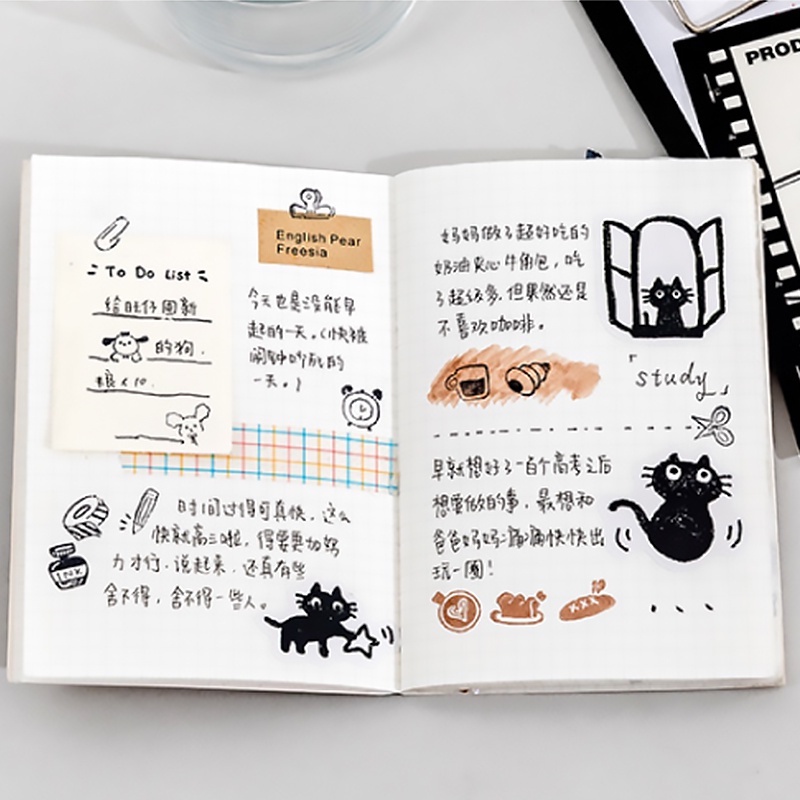 To Do List
给旺仔囤新
的狗
粮×10.
English Pear
Freesia
今天也是没能早
起的一天。(快被
闹钟吵死的
一天。)
INK
时间过得可真快,这么
快就高三啦,得要更加努
力才行.说起来,还真有些
舍不得,舍不得一些人。
妈妈做了超好吃的
奶油夹心牛角包,吃
了超级多.但果然还是
不喜欢咖啡。
「study」
早就想好了一百个高考之后
想要做的事,最想和
爸爸妈妈痛痛快快出
玩一圈!
PROD